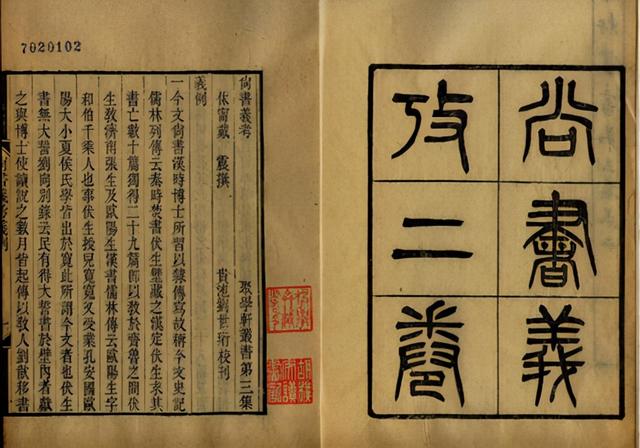 尚書義
攷二卷
7020102
尚書義考 聚學軒叢書第三集
休甯戴 震撰 貴池劉世珩校刊
義例
一今文尚書漢時博士所習以隸傳寫故稱今文史記
儒林列傳云秦時焚書伏生壁藏之漢定伏生求其
書亡數十篇獨得二十九篇即以敎於齊魯之間伏
生敎濟南張生及歐陽生漢書儒林傳云歐陽生字
和伯千乘人也事伏生授兒寬寬又受業孔安國歐
陽大小夏侯氏學皆出於寬此所謂今文者也伏生
書無大誓劉向別錄云民有得大誓書於壁內者獻
之與博士使讀說之數月皆起傳以敎人劉歆移書
尚書義考義例 一